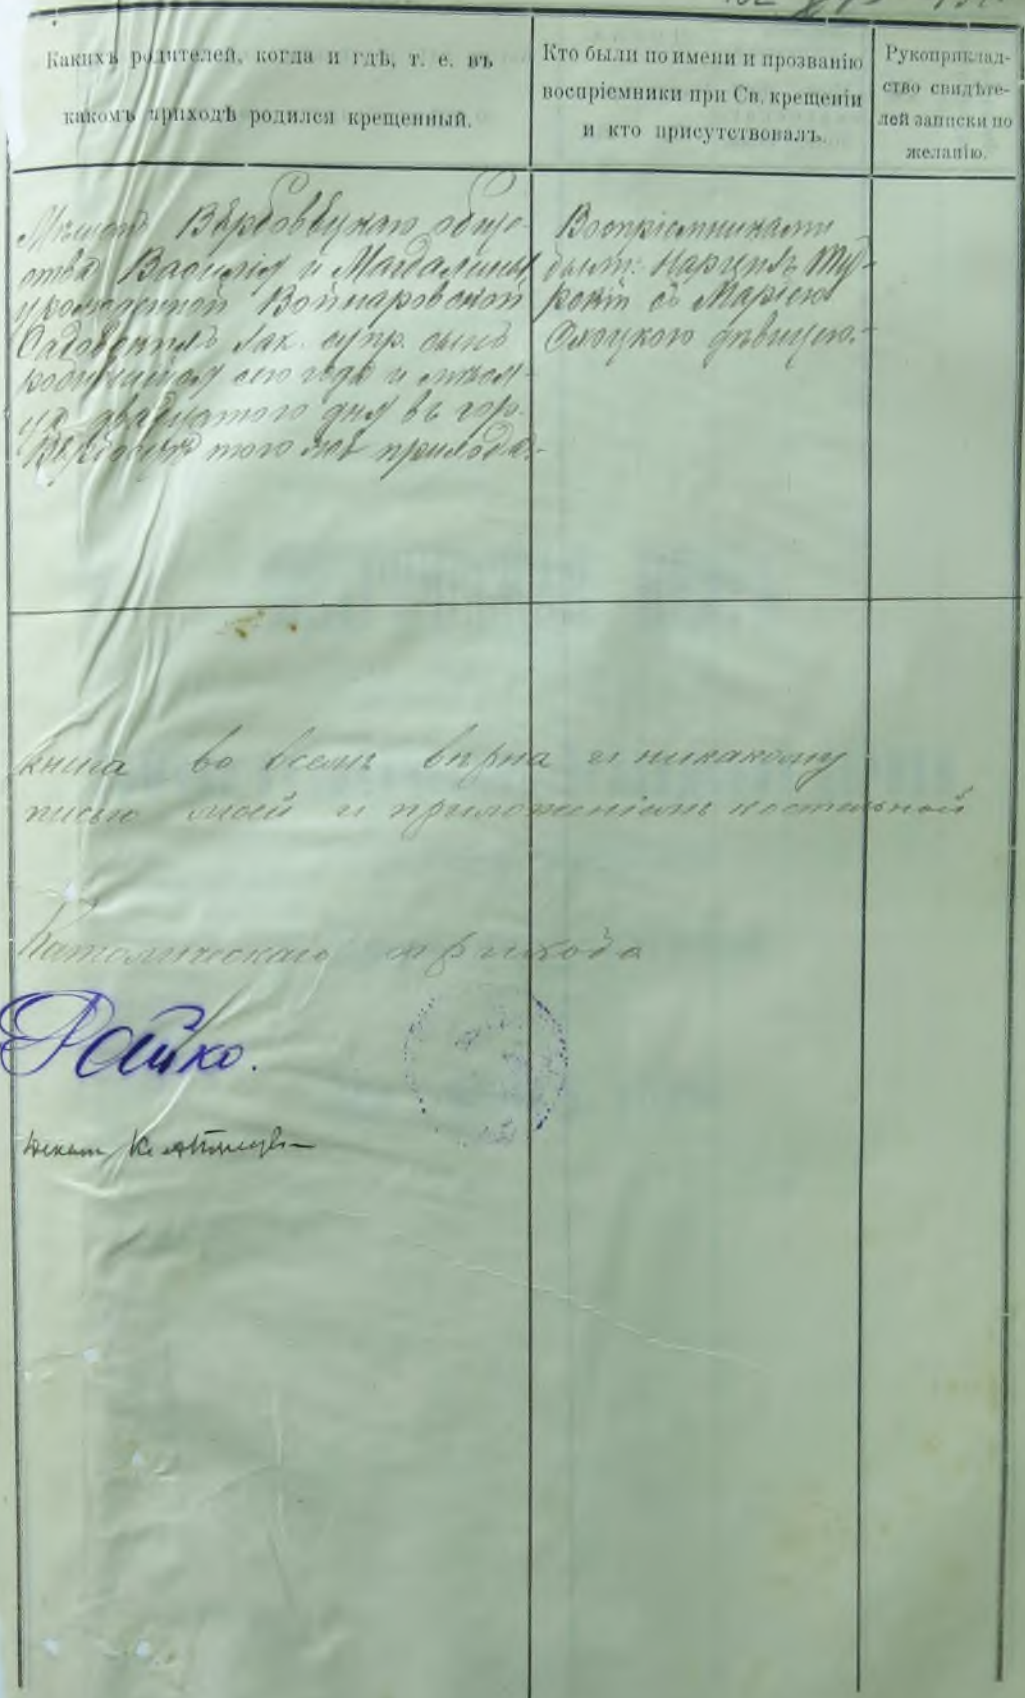 Какихъ родителей, когда и гдѣ, т. е. въ
какомъ приходѣ родился крещенный.
Кто были по имени и прозванію
воспріемники при Св. крещеніи
и кто присутствовалъ.
Рукоприклад-
ство свидѣте-
лей записки по
желанію.
Мѣщанъ Вербовецкаго обще-
ства Василія и Магдалины
урожденной Войнаровской
Садовскихъ зак. супр. сынъ
родившійся сего года и мѣся-
ца двадцатого дня въ гор.
того же прихода.
Воспріемниками
были: Нарцизъ Ту-
рскій съ Маріею
дѣвицею.
книга во всемъ вѣрна и никакому
писью моей и приложеніемъ костельной
Католическаго прихода
Райко.
Деканъ Кс.